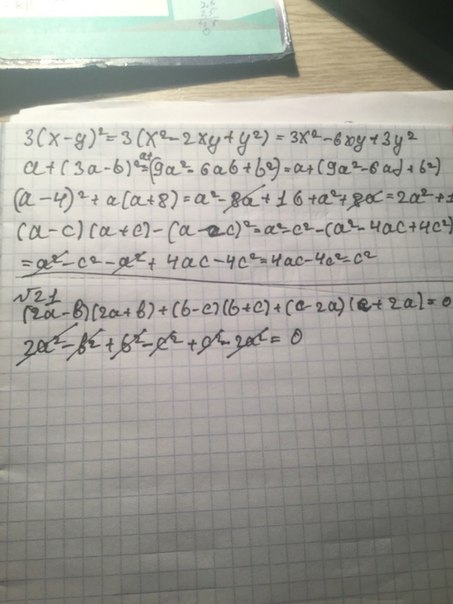 3(x-y)²=3(x²-2xy+y²)=3x²-6xy+3y²
a+(3a-b)²=a+(9a²-6ab+b²)=a+(9a²-6ab+b²)
(a-4)²+a(a+8)=a²-8a+16+a²+8a=2a²+1
(a-c)(a+c)-(a-2c)²=a²-c²-(a²-4ac+4c²)
=a²-c²-a²+4ac-4c²=4ac-4c²-c²
√21
(2a-b)(2a+b)+(b-c)(b+c)+(c-2a)(c+2a)=0
2a²-b²+b²-c²+c²-2a²=0